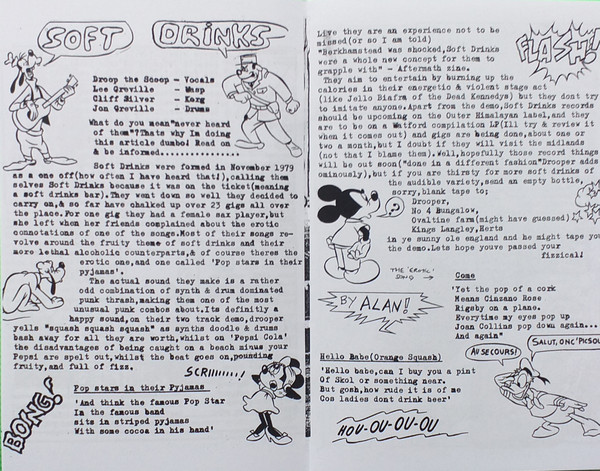 SOFT DRINKS
Droop the Scoop - Vocals
Lee Greville - Wasp
Cliff Silver - Korg
Jon Greville - Drums
What do you mean"never heard
of them"?Thats why Im doing
this article dumbo! Read on
& be informed...............
Soft Drinks were formed in November 1979
as a one off(how often I have heard that!),calling them
selves Soft Drinks because it was on the ticket(meaning
a soft drinks bar).They went down so well they decided to
carry on,& so far have chalked up over 23 gigs all over
the place.For one gig they had a female sax player,but
she left when her friends complained about the erotic
connotations of one of the songs.Most of their songs re-
volve around the fruity theme of soft drinks and their
more lethal alcoholic counterparts,& of course theres the
erotic one,and one called 'Pop stars in their
pyjamas'.
The actual sound they make is a rather
odd combination of synth & drum dominated
punk thrash,making them one of the most
unusual punk combos about.Its definitly a
happy sound,on their two track demo,drooper
yells "squash squash squash" as synths doodle & drums
bash away for all they are worth,whilst on 'Pepsi Cola'
the disadvantages of being caught on a beach minus your
Pepsi are spelt out,whilst the beat goes on,pounding
fruity,and full of fizz.
SCRIIIIIII!
BOING!
Pop stars in their Pyjamas
'And think the famous Pop Star
In the famous band
sits in striped pyjamas
With some cocoa in his hand'
Live they are an experience not to be
missed(or so I am told)
"Berkhamstead was shocked,Soft Drinks
were a whole new concept for them to
grapple with" - Aftermath zine.
They aim to entertain by burning up the
calories in their energetic & violent stage act
(like Jello Biafra of the Dead Kennedys) but they dont try
to imitate anyone.Apart from the demo,Soft Drinks records
should be upcoming on the Outer Himalayan label,and they
are to be on a Watford compilation LP(Ill try & review it
when it comes out) and gigs are being done,about one or
two a month,but I doubt if they will visit the midlands
(not that I blame them).Well,hopefully those record things
will be out soon("done in a different fashion"Drooper adds
ominously),but if you are thirsty for more soft drinks of
the audible variety,send an empty bottle,
sorry,blank tape to;
Drooper,
No 4 Bungalow,
Ovaltine farm(might have guessed)
Kings Langley,Herts
in ye sunny ole england and he might tape you
the demo.Lets hope youve passed your
fizzical!
FLASH!
?
THE 'EROTIC' SONG →
BY ALAN!
Come
'Tet the pop of a cork
Means Cinzano Rose
Rigsby on a plane.
Everytime my eyes pop up
Joan Collins pop down again...
And again"
Hello Babe(Orange Squash)
'Hello babe,can I buy you a pint
Of Skol or something near.
But gosh,how rude it is of me
Cos ladies dont drink beer'
AU SECOURS!
SALUT, ONC' PICSOU
HOU-OU-OU-OU